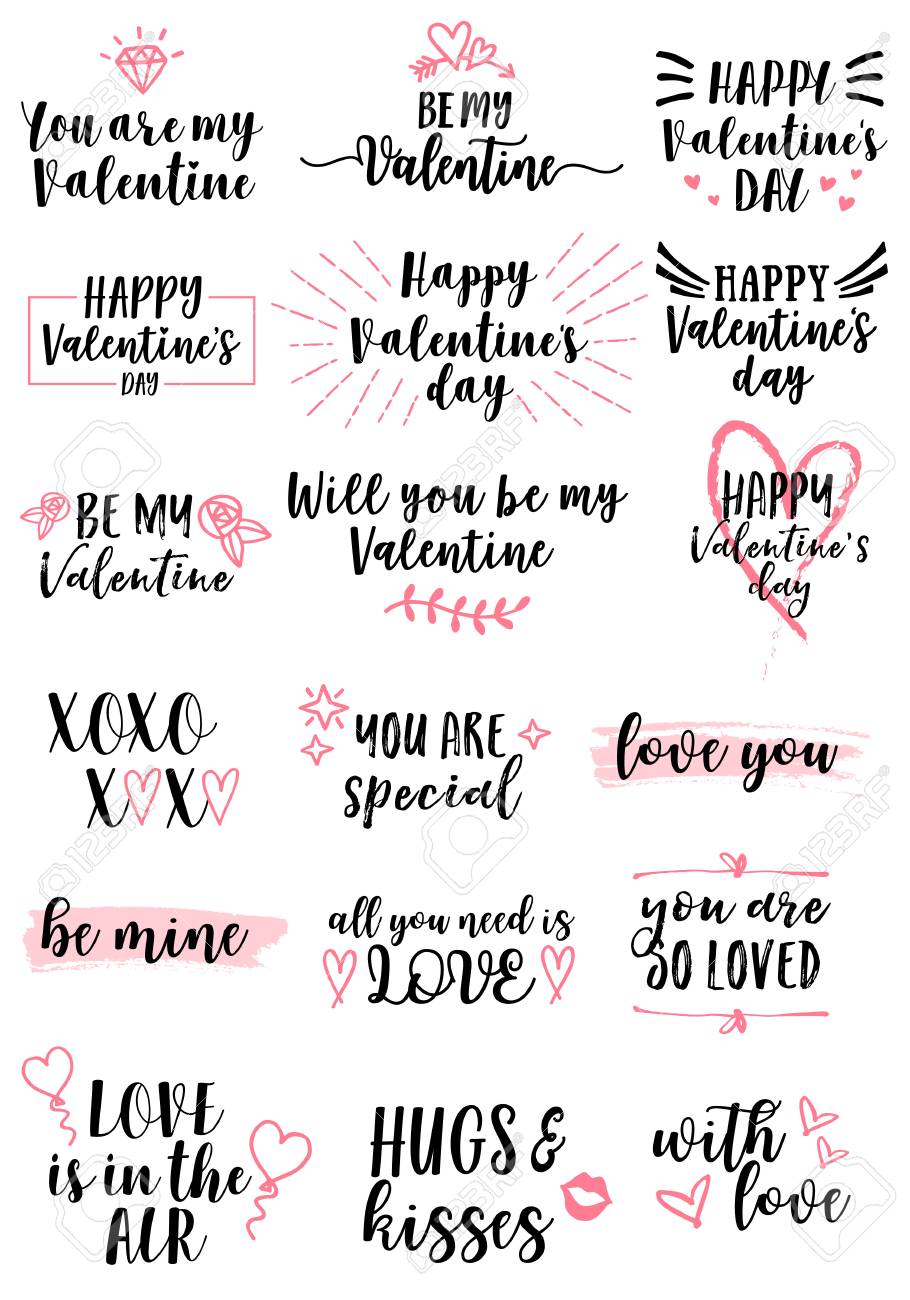 You are my
Valentine
BE MY
Valentine
HAPPY
Valentine's
DAY
HAPPY
Valentine's
DAY
Happy
Valentine's
day
HAPPY
Valentine's
day
BE MY
Valentine
Will you be my
Valentine
HAPPY
Valentine's
day
XOXO
XX
YOU ARE
special
love you
be mine
all you need is
LOVE
you are
SO LOVED
LOVE
is in the
AIR
HUGS &
kisses
with
love
123RF